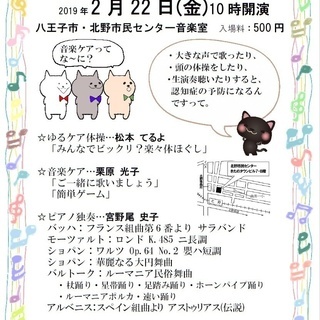 2019年2月22日(金)10時開演
八王子市・北野市民センター音楽室 入場料：500円
音楽ケアって
な〜に？
・大きな声で歌ったり、
・頭の体操をしたり、
・生演奏聴いたりすると、
認知症の予防になるん
ですって。
☆ゆるケア体操…松本 てるよ
「みんなでビックリ？楽々体ほぐし」
☆音楽ケア…栗原 光子
「ご一緒に歌いましょう」
「簡単ゲーム」
北野市民センター
きたのタウンビル7・8階
☆ピアノ独奏…宮野尾 史子
バッハ：フランス組曲第6番より サラバンド
モーツァルト：ロンド K.485 ニ長調
ショパン：ワルツ Op.64 No.2 嬰ハ短調
ショパン：華麗なる大円舞曲
バルトーク：ルーマニア民俗舞曲
・杖踊り・星帯踊り・足踏み踊り・ホーンパイプ踊り
・ルーマニアポルカ・速い踊り
アルベニス：スペイン組曲より アストゥリアス(伝説)